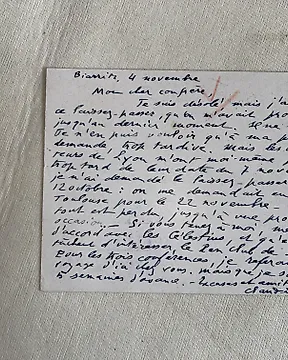 Biarritz, 4 novembre
Mon cher confrère,
Je suis désolé mais j'a
ce laissez-passer, qu'on m'avait pro
jusqu'au dernier moment.
Je n'en puis vouloir qu'à ma p
demande, trop tardive. Mais les
teurs de Lyon m'ont moi-même
trop tard de leur date du 7 nove
je n'ai demandé le laissez-passer
12 octobre : on me demandait
Toulouse pour le 22 novembre -
tout est perdu, jusqu'à une pro
occasion. - Si vous tenez à moi, me
d'accord avec les Célestins et qu'e
tâchent d'intéresser le Pen Club de
Pour les trois conférences, je referai
d'ici chez vous. mais que je s
5 semaines d'avance. - Excuses et amiti